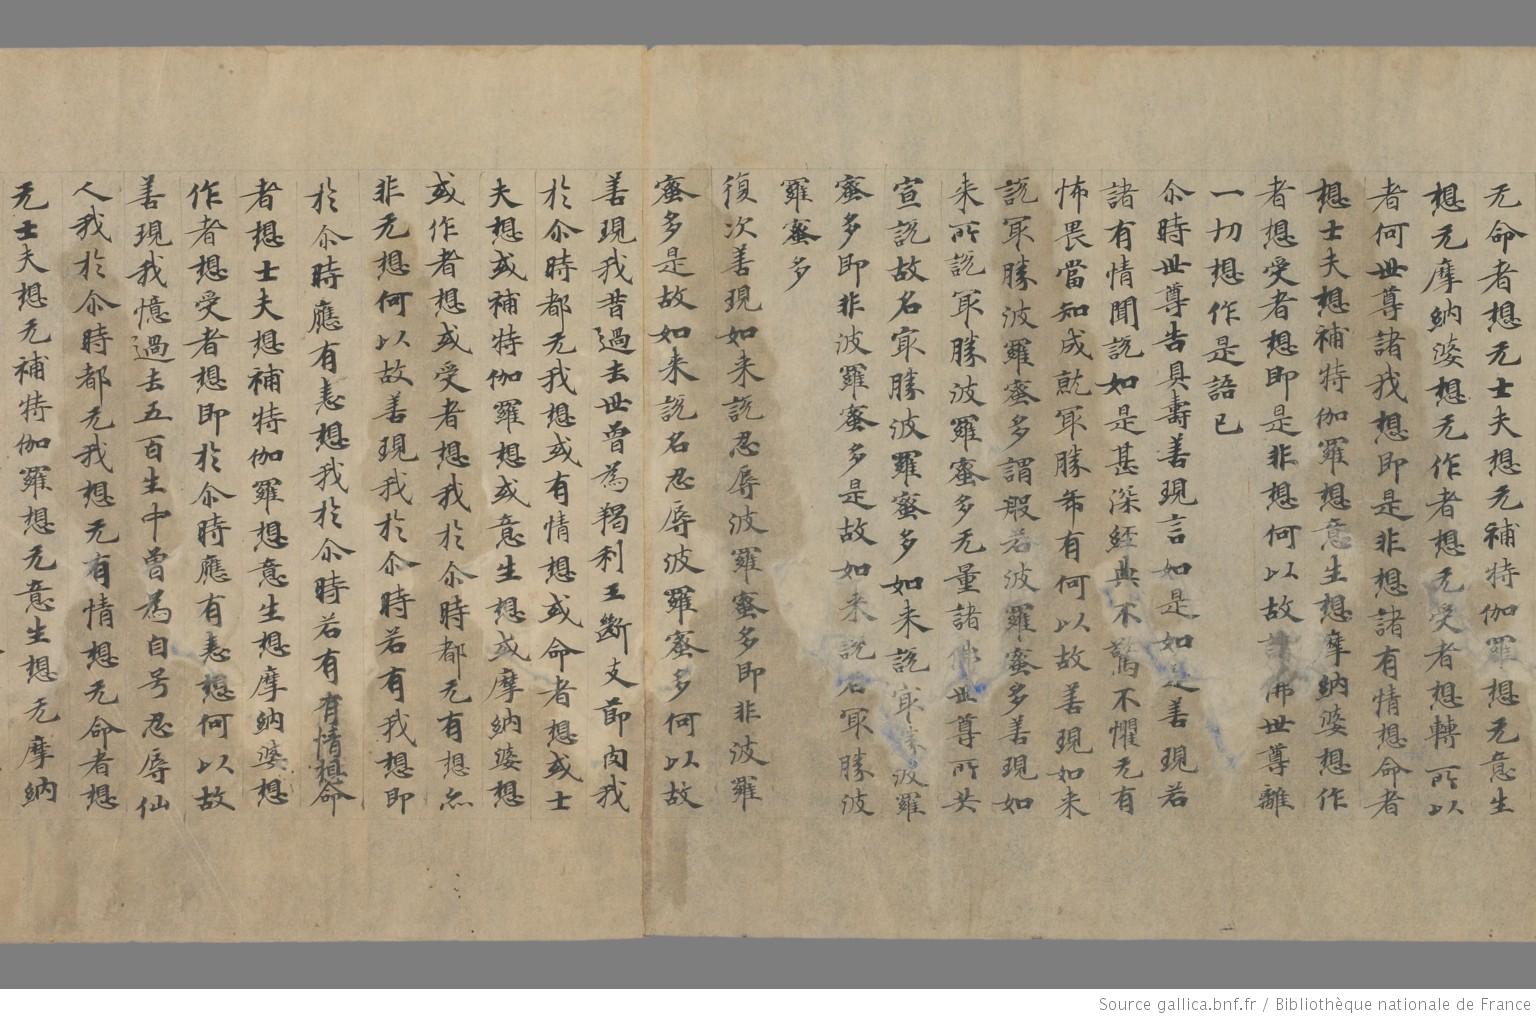 无命者想无士夫想无補特伽羅想无意生
想无摩納婆想无作者想无受者想轉所以
者何世尊諸我想即是非想諸有情想命者
想士夫想補特伽羅想意生想摩納婆想作
者想受者想即是非想何以故諸佛世尊離
一切想作是語已
尒時世尊告具壽善現言如是如是善現若
諸有情聞說如是甚深經典不驚不懼无有
怖畏當知成就冣勝希有何以故善現如来
說冣勝波羅蜜多謂般若波羅蜜多善現如
来所說冣勝波羅蜜多无量諸佛世尊所共
宣說故名冣勝波羅蜜多如来說冣勝波羅
蜜多即非波羅蜜多是故如来說名冣勝波
羅蜜多
復次善現如来說忍辱波羅蜜多即非波羅
蜜多是故如来說名忍辱波羅蜜多何以故
善現我昔過去世曾為羯利王斷支節肉我
於尒時都无我想或有情想或命者想或士
夫想或補特伽羅想或意生想或摩納婆想
或作者想或受者想我於尒時都无有想亦
非无想何以故善現我於尒時若有我想即
於尒時應有恚想我於尒時若有有情想命
者想士夫想補特伽羅想意生想摩納婆想
作者想受者想即於尒時應有恚想何以故
善現我憶過去五百生中曾為自号忍辱仙
人我於尒時都无我想无有情想无命者想
无士夫想无補特伽羅想无意生想无摩納
Source gallica.bnf.fr / Bibliothèque nationale de France